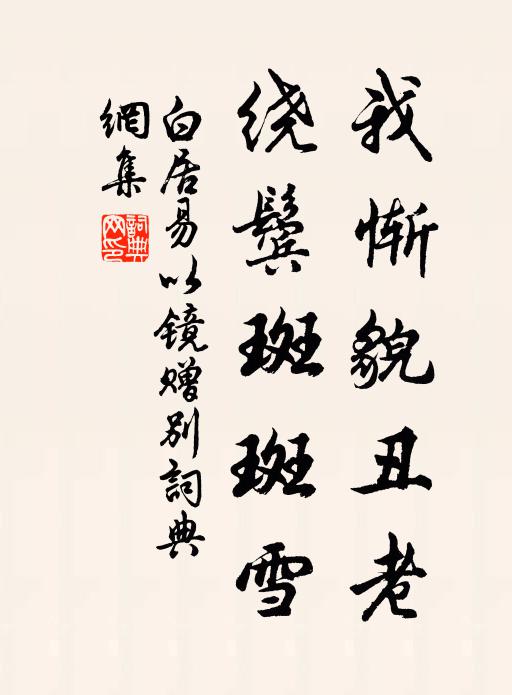 我惭貌丑老
绕鬓斑斑雪
白居易以镜赠别詞典
網集
詞典
网印